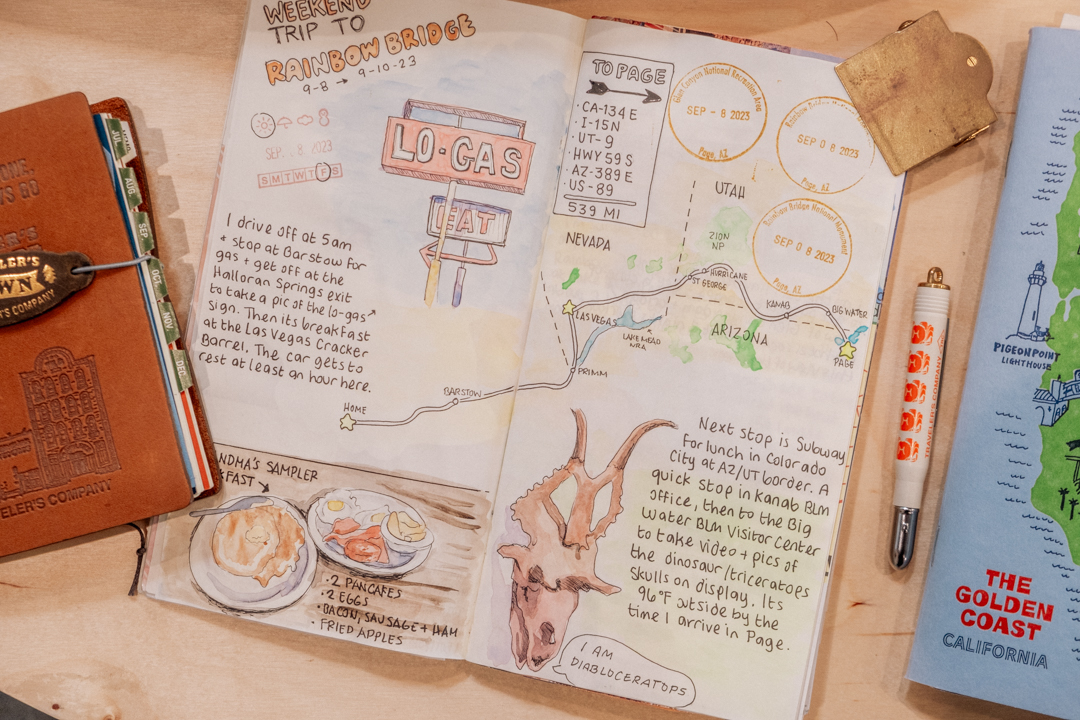 WEEKEND
TRIP TO
RAINBOW BRIDGE
9-8 → 9-10-23
SEP 8 2023
S M T W T F S
LO-GAS
EAT
I drive off at 5am
+ stop at Barstow for
gas + get off at the
Halloran Springs exit
to take a pic of the lo-gas
sign. Then its breakfast
at the Las Vegas Cracker
Barrel. The car gets to
rest at least an hour here.
HOME
BARSTOW
PRIMM
NDMA'S SAMPLER
FAST
• 2 PANCAKES
• 2 EGGS
• BACON, SAUSAGE + HAM
• FRIED APPLES
TO PAGE
• CA-134 E
• I-15 N
• UT-9
• HWY 59 S
• AZ-389 E
• US-89
539 MI
Glen Canyon National Recreation Area
SEP - 8 2023
Page, AZ
Rainbow Bridge
SEP 08 2023
Page, AZ
Rainbow Bridge National Monument
SEP 08 2023
Page, AZ
UTAH
NEVADA
ZION
NP
HURRICANE
ST GEORGE
KANAB
BIG WATER
LAS VEGAS
LAKE MEAD
NRA
ARIZONA
PAGE
Next stop is Subway
for lunch in Colorado
City at AZ/UT border. A
quick stop in Kanab BLM
office, then to the Big
Water BLM Visitor Center
to take video + pics of
the dinosaur/triceratops
skulls on display. Its
96°F outside by the
time I arrive in Page.
I AM
DIABLOCERATOPS
JUL
AUG
SEP
OCT
NOV
DEC
LER'S
WN
LER'S COMPANY
VELER'S COMPANY
TRAVELER'S COMPANY
PIGEON POINT
LIGHTHOUSE
THE
GOLDEN
COAST
CALIFORNIA